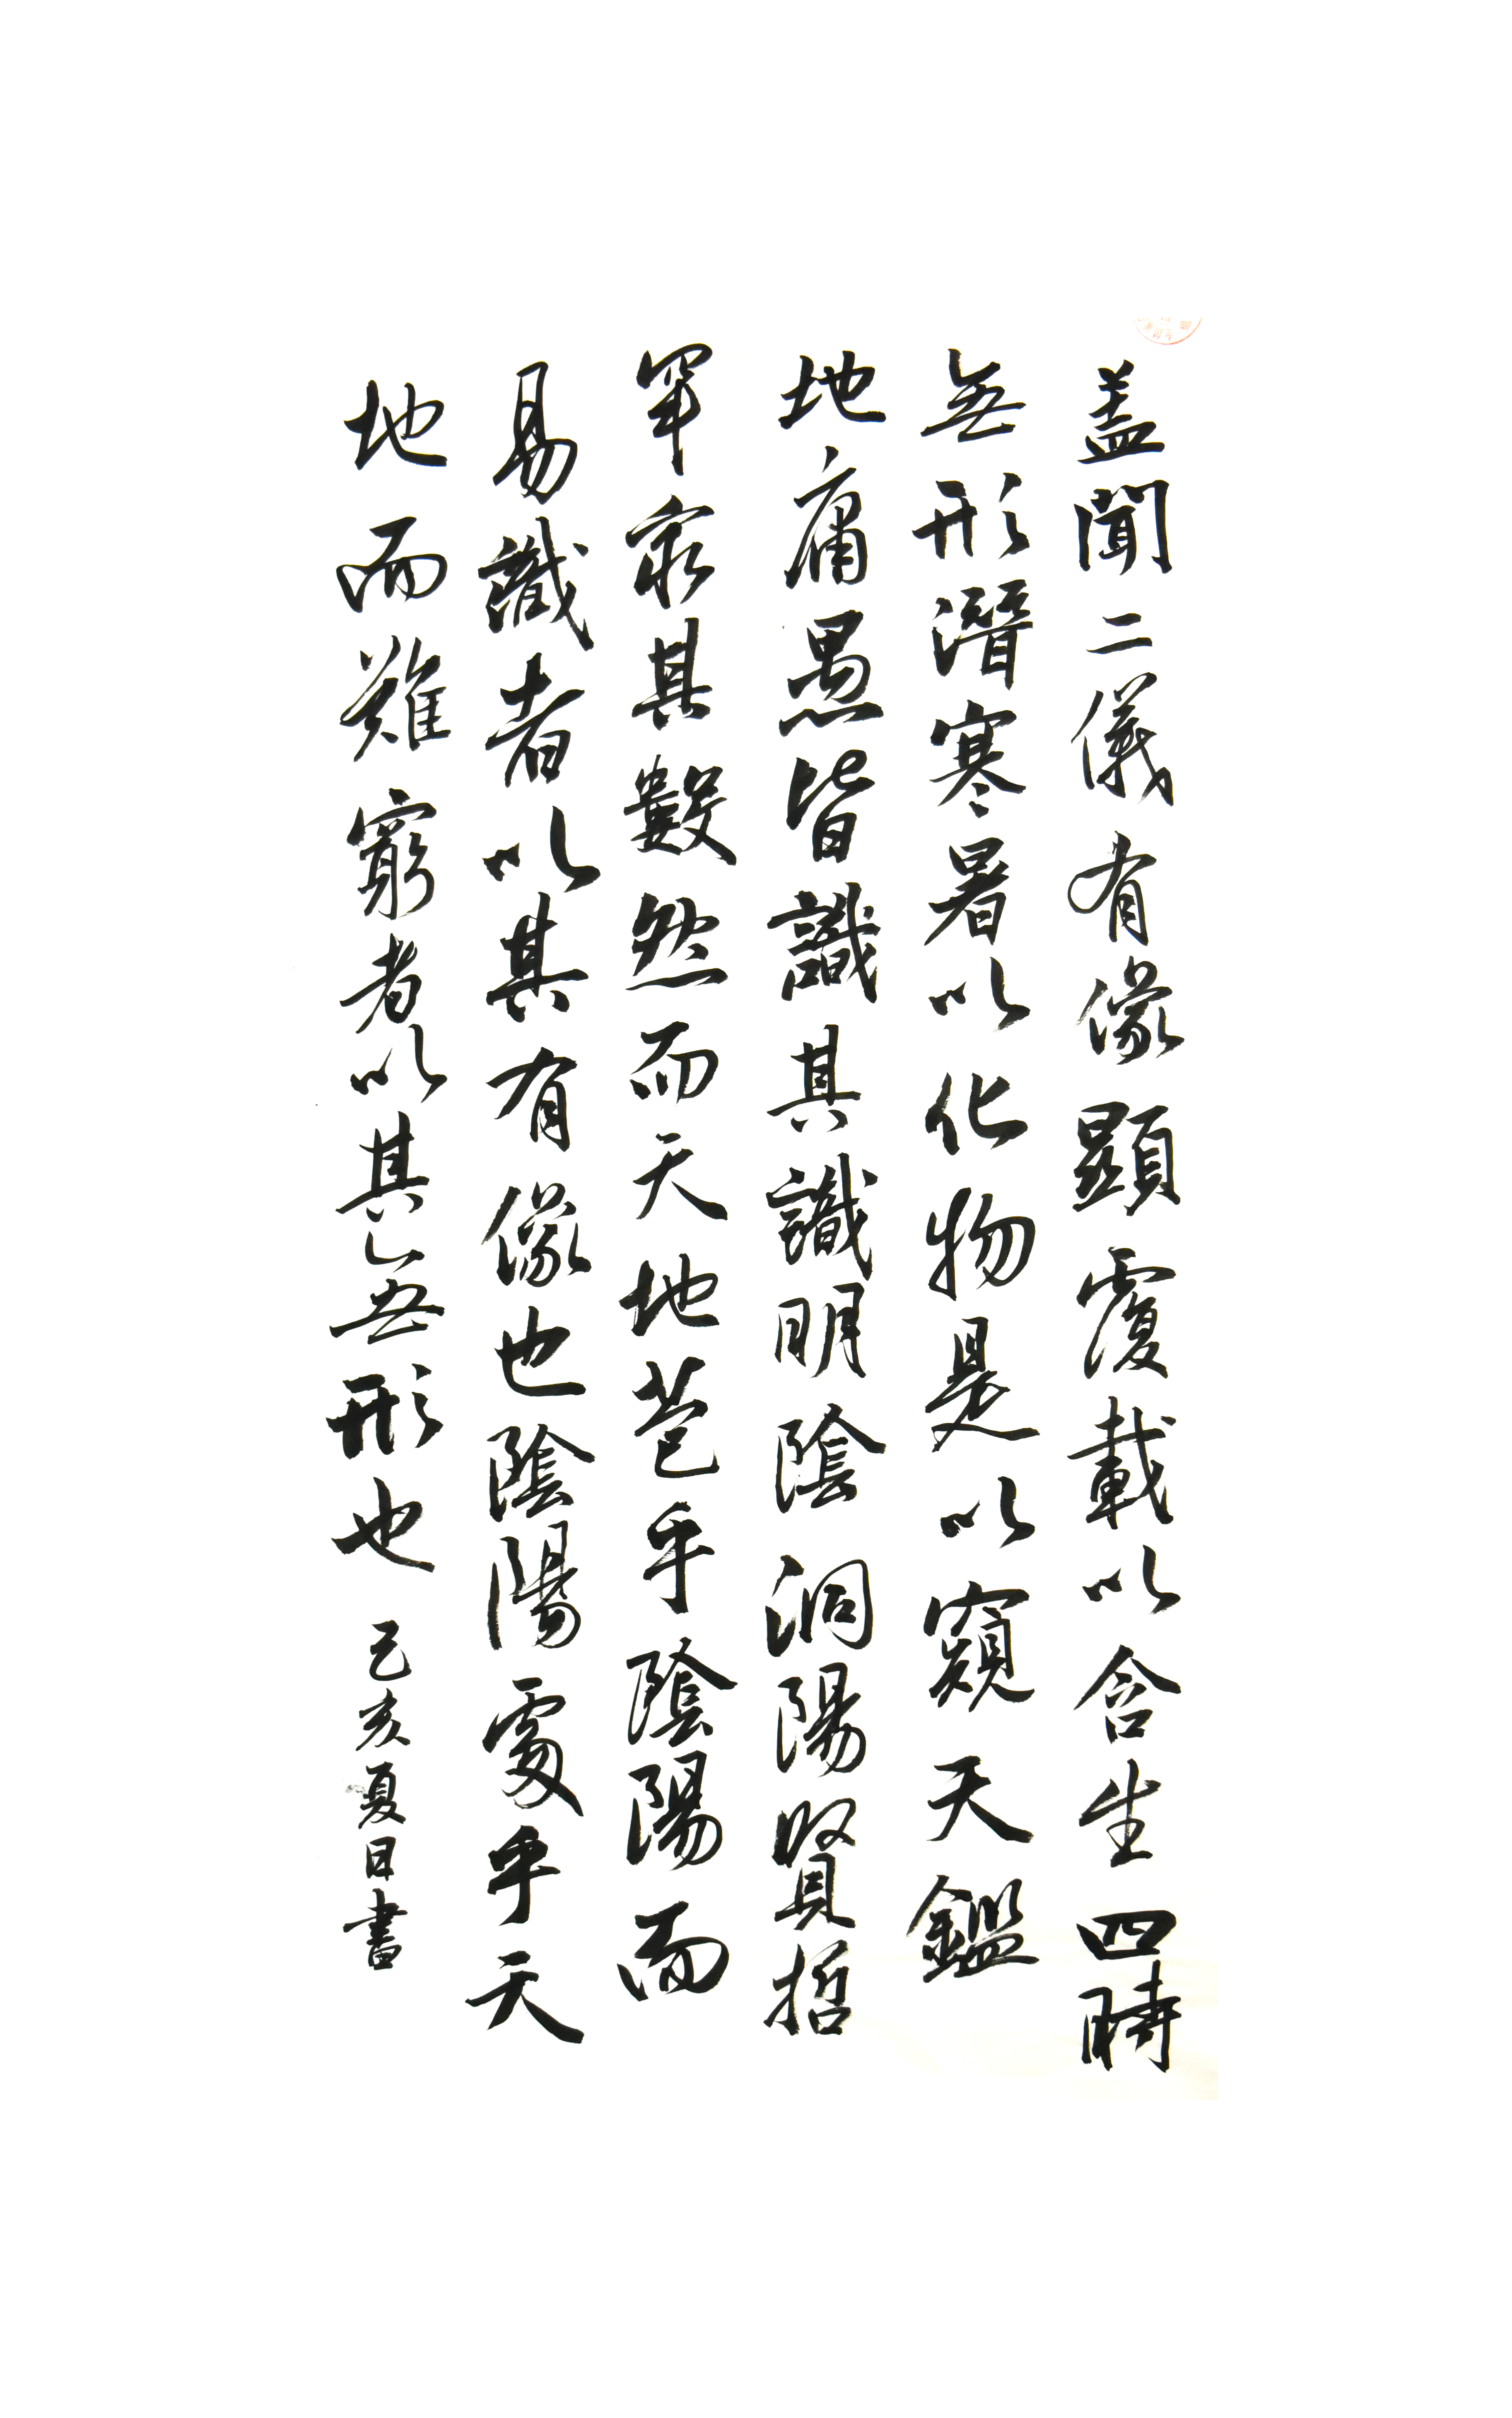 蓋聞二儀有像顯覆載以含生四時
無形潛寒暑以化物是以窺天鑑
地庸愚皆識其識明陰洞陽賢哲
罕窮其數然而天地苞乎陰陽而
易識者以其有像也陰陽處乎天
地而難窮者以其無形也
己亥夏日書